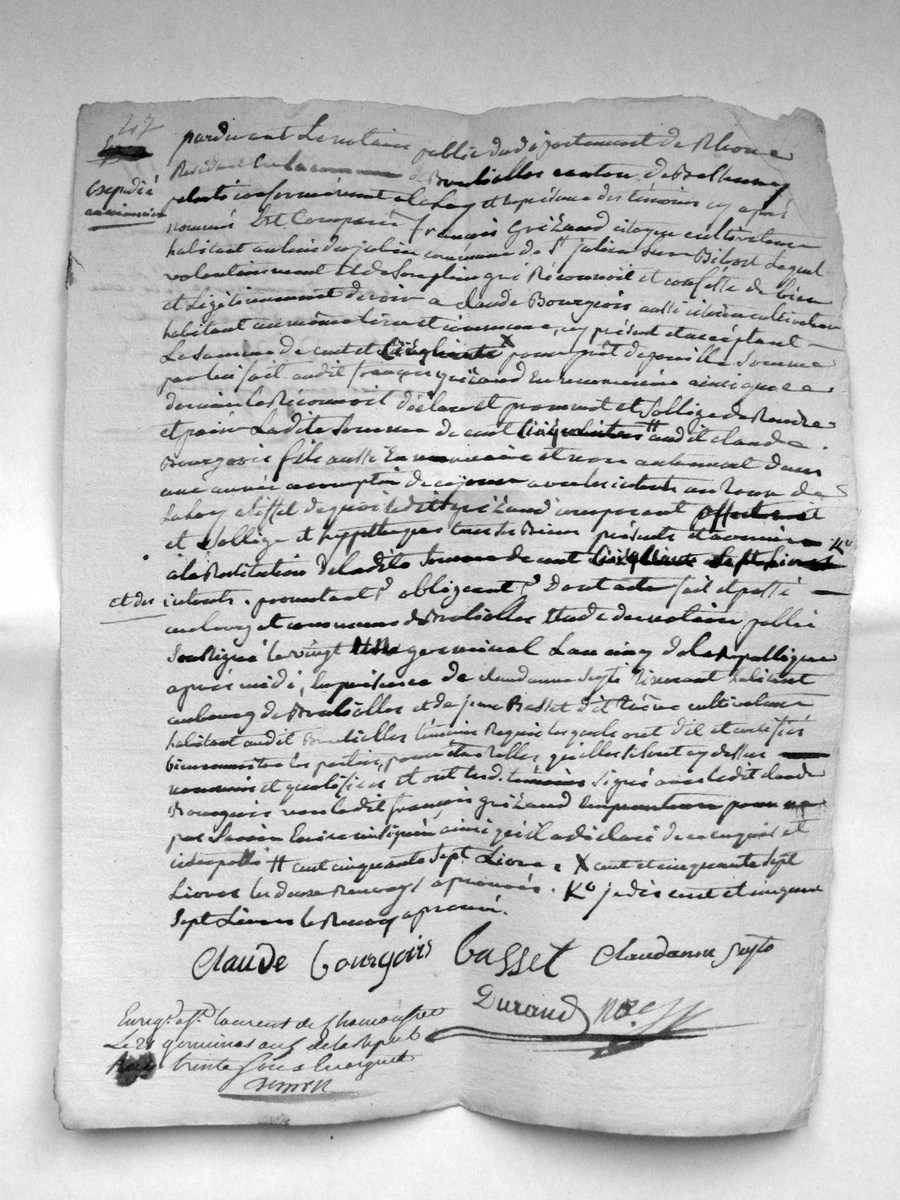 47
pardevant Le notaire public du département de Rhone
Expedié
Résident en la commune de Brulliolles canton de Bessenay
patenté conformement a la Loy et en présence des témoins cy après
nommés Est Comparu françois Grizaud citoyen cultivateur
habitant au lieu du julin commune de St julien Sur Bibost Lequel
volontairement et de Son plein gré Reconnoit et confesse de bien
et Légitimement devoir a claude Bourgeois aussi citoyen cultivateur
habitant au même Lieu et commune, cy présent et acceptant
La Somme de cent et Cinquante X pour prêt de pareille Somme
par lui fait audit françois grizaud En numeraire ainsi que ce
dernier le Reconnoit déclare et promet et S'oblige de Rendre
et paier Ladite Somme de cent H audit claude
Bourgeois fils aussi En numeraire et non autrement dans
une année a compter de ce jour avec les interets au taux de
La Loy a l'effet de quoi ledit grizaud
et oblige et hypotheque tous Ses Biens présents et avenir
a la Restitution de Ladite Somme de cent Cinquante Sept Livres Ko
et des interets. promettant obligeant Dont acte fait et passé
au bourg et commune de Brulliolles Etude du notaire public
Soussigné le vingt germinal L'an cinq de la Republique
après midi, En présence de claudanne Seyte tisserant habitant
au bourg de Brulliolles et de jean Basset cultivateur
habitant audit Brulliolles témoins Requis lesquels ont dit et certifiés
bien connoitre les parties, pour être telles qu'elles Se Sont cy dessus
nommées et qualifiées et ont lesd. témoins Signé avec ledit claude
Bourgeois non ledit françois grizaud
pas Savoir Ecrire ni Signer ainsi qu'il a déclaré de ce enquis et
interpellé H cent cinquante Sept Livres X cent et cinquante Sept
Livres Les deux Renvoys aprouvés. Ko je dis cent et cinquante
Sept Livres le Renvoy aprouvé.
Claude bourgois basset Claudanne Seyte
Durand nore
Enregt. a St. Laurent de Chamousset
Le 28 germinal an 5 de la Repub
trente Sous